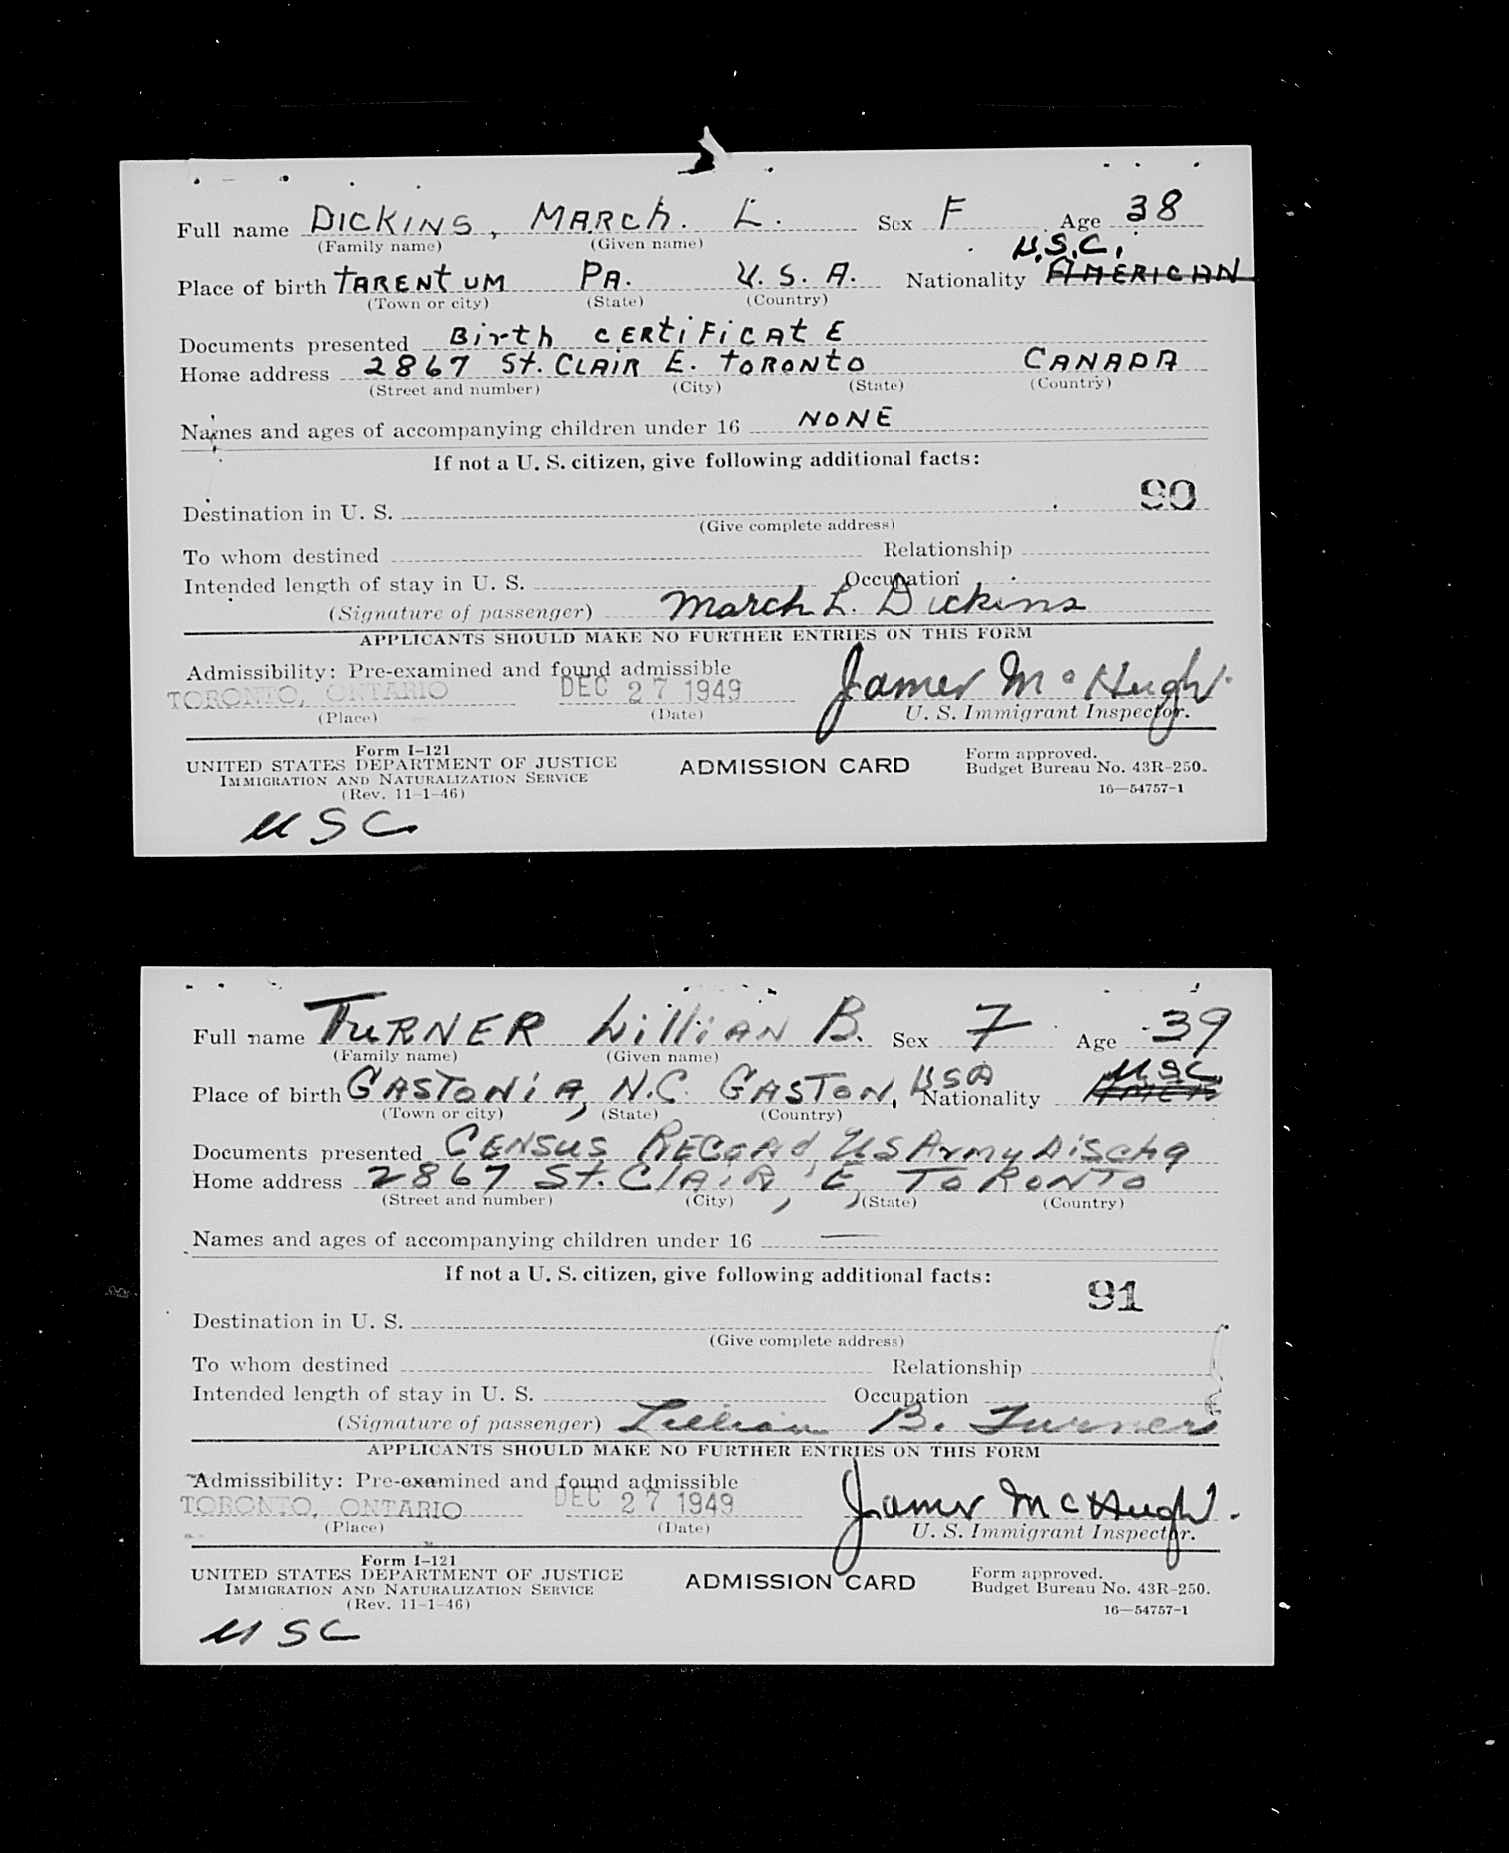 Full name DICKINS, MARCH. L. Sex F Age 38
(Family name) (Given name)
U.S.C.
Place of birth TARENTUM PA. U. S. A. Nationality AMERICAN
(Town or city) (State) (Country)
Documents presented Birth CERTIFICATE
Home address 2867 St. CLAIR E. TORONTO CANADA
(Street and number) (City) (State) (Country)
Names and ages of accompanying children under 16 NONE
If not a U. S. citizen, give following additional facts:
90
Destination in U. S.
(Give complete address)
To whom destined Relationship
Intended length of stay in U. S. Occupation
(Signature of passenger) March L. Dickins
APPLICANTS SHOULD MAKE NO FURTHER ENTRIES ON THIS FORM
Admissibility: Pre-examined and found admissible
TORONTO, ONTARIO DEC 27 1949 James McHugh
(Place) (Date) U. S. Immigrant Inspector.
Form I-121
UNITED STATES DEPARTMENT OF JUSTICE
IMMIGRATION AND NATURALIZATION SERVICE
(Rev. 11-1-46)
ADMISSION CARD
Form approved.
Budget Bureau No. 43R-250.
16—54757-1
USC
Full name TURNER Lillian B. Sex F Age 39
(Family name) (Given name)
USC
Place of birth GASTONIA, N.C. GASTON, USA Nationality AMER
(Town or city) (State) (Country)
Documents presented CENSUS RECORD US Army Dischg
Home address 2867 St. CLAIR, E, TORONTO
(Street and number) (City) (State) (Country)
Names and ages of accompanying children under 16 —
If not a U. S. citizen, give following additional facts:
91
Destination in U. S.
(Give complete address)
To whom destined Relationship
Intended length of stay in U. S. Occupation
(Signature of passenger) Lillian B. Turner
APPLICANTS SHOULD MAKE NO FURTHER ENTRIES ON THIS FORM
Admissibility: Pre-examined and found admissible
TORONTO, ONTARIO DEC 27 1949 James McHugh.
(Place) (Date) U. S. Immigrant Inspector.
Form I-121
UNITED STATES DEPARTMENT OF JUSTICE
IMMIGRATION AND NATURALIZATION SERVICE
(Rev. 11-1-46)
ADMISSION CARD
Form approved.
Budget Bureau No. 43R-250.
16—54757-1
USC